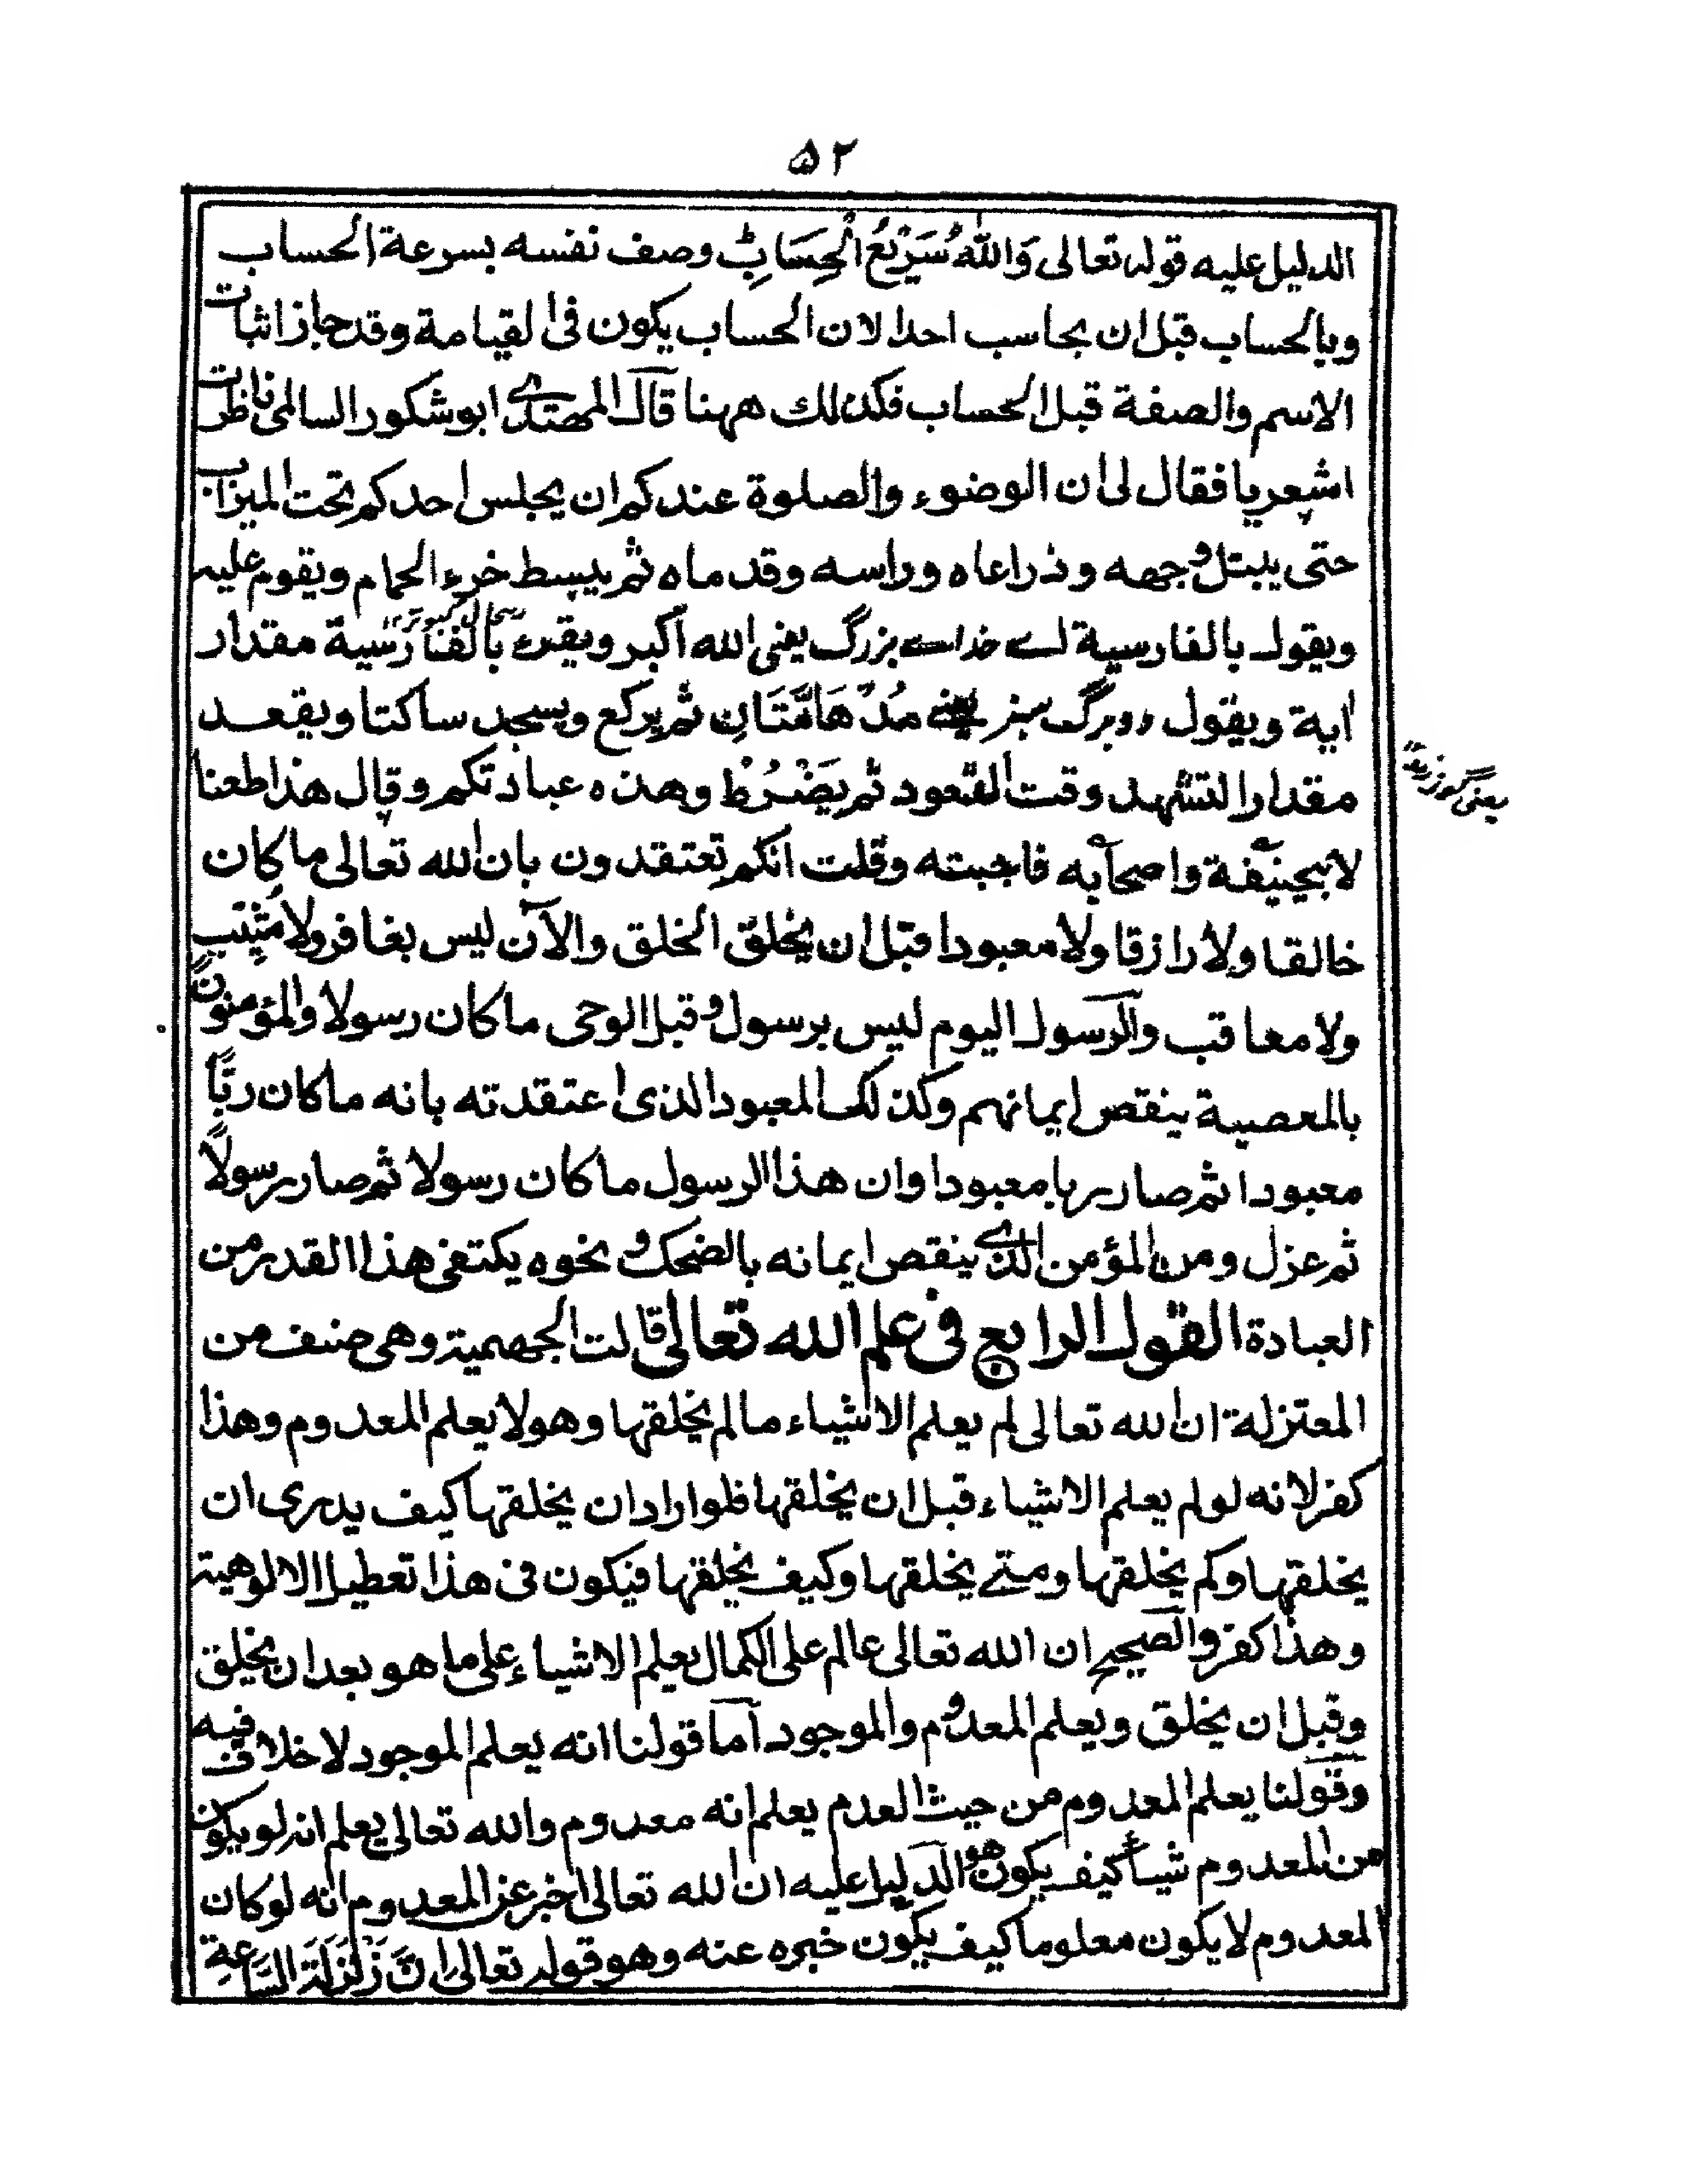 ۵۲
الدليل عليه قوله تعالى وَاللّٰهُ سَرِيْعُ الْحِسَابِ وصف نفسه بسرعة الحساب
وبالحساب قبل ان يحاسب احدا لان الحساب يكون فى القيامة وقد جاز اثبات
الاسم والصفة قبل الحساب فكذلك ههنا قال المهتدے ابو شكور السالمى ناظرت
اشعريا فقال لى ان الوضوء والصلوة عندكم ان يجلس احدكم تحت الميزاب
حتى يبتل وجهه وذراعاه وراسه وقدماه ثم يبسط خرء الحمام ويقوم عليه
ويقول بالفارسية اے خداے بزرگ يعنى الله اكبر ويقرء بالفارسية مقدار
اية ويقول دو برگ سبز يعنے مُدْهَامَّتَانِ ثم يركع ويسجد ساكتا ويقعد
مقدار التشهد وقت القعود ثم يَضْرُطُ وهذه عبادتكم وقال هذا طعنا
لابيحنيفة واصحابه فاجبته وقلت انكم تعتقدون بان الله تعالى ما كان
خالقا ولا رازقا ولا معبودا قبل ان يخلق الخلق والآن ليس بغافر ولا مُثِيب
ولا معاقب والرسول اليوم ليس برسول وقبل الوحى ما كان رسولا والمؤمنون
بالمعصية ينقص ايمانهم وكذلك المعبود الذى اعتقدته بانه ما كان ربًّا
معبودا ثم صار ربا معبودا وان هذا الرسول ما كان رسولا ثم صار رسولًا
ثم عزل ومن المؤمن الذے ينقص ايمانه بالضحك ونحوه يكتفى هذا القدر من
العبادة القول الرابع فى علم الله تعالى قالت الجهمية وهى صنف من
المعتزلة ان الله تعالى لم يعلم الاشياء مالم يخلقها وهو لا يعلم المعدوم وهذا
كفر لانه لو لم يعلم الاشياء قبل ان يخلقها فلو اراد ان يخلقها كيف يدرى ان
يخلقها وكم يخلقها ومتے يخلقها وكيف يخلقها فيكون فى هذا تعطيل الالوهية
وهذا كفر والصحيح ان الله تعالى عالم على الكمال يعلم الاشياء على ما هو بعد ان يخلق
وقبل ان يخلق ويعلم المعدوم والموجود اما قولنا انه يعلم الموجود لا خلاف فيه
وقولنا يعلم المعدوم من حيث العدم يعلم انه معدوم والله تعالى يعلم انه لو يكون
من المعدوم شيأ كيف يكون هو الدليل عليه ان الله تعالى اخبر عن المعدوم انه لو كان
المعدوم لا يكون معلوما كيف يكون خبره عنه وهو قوله تعالى اِنَّ زَلْزَلَةَ السَّاعَةِ